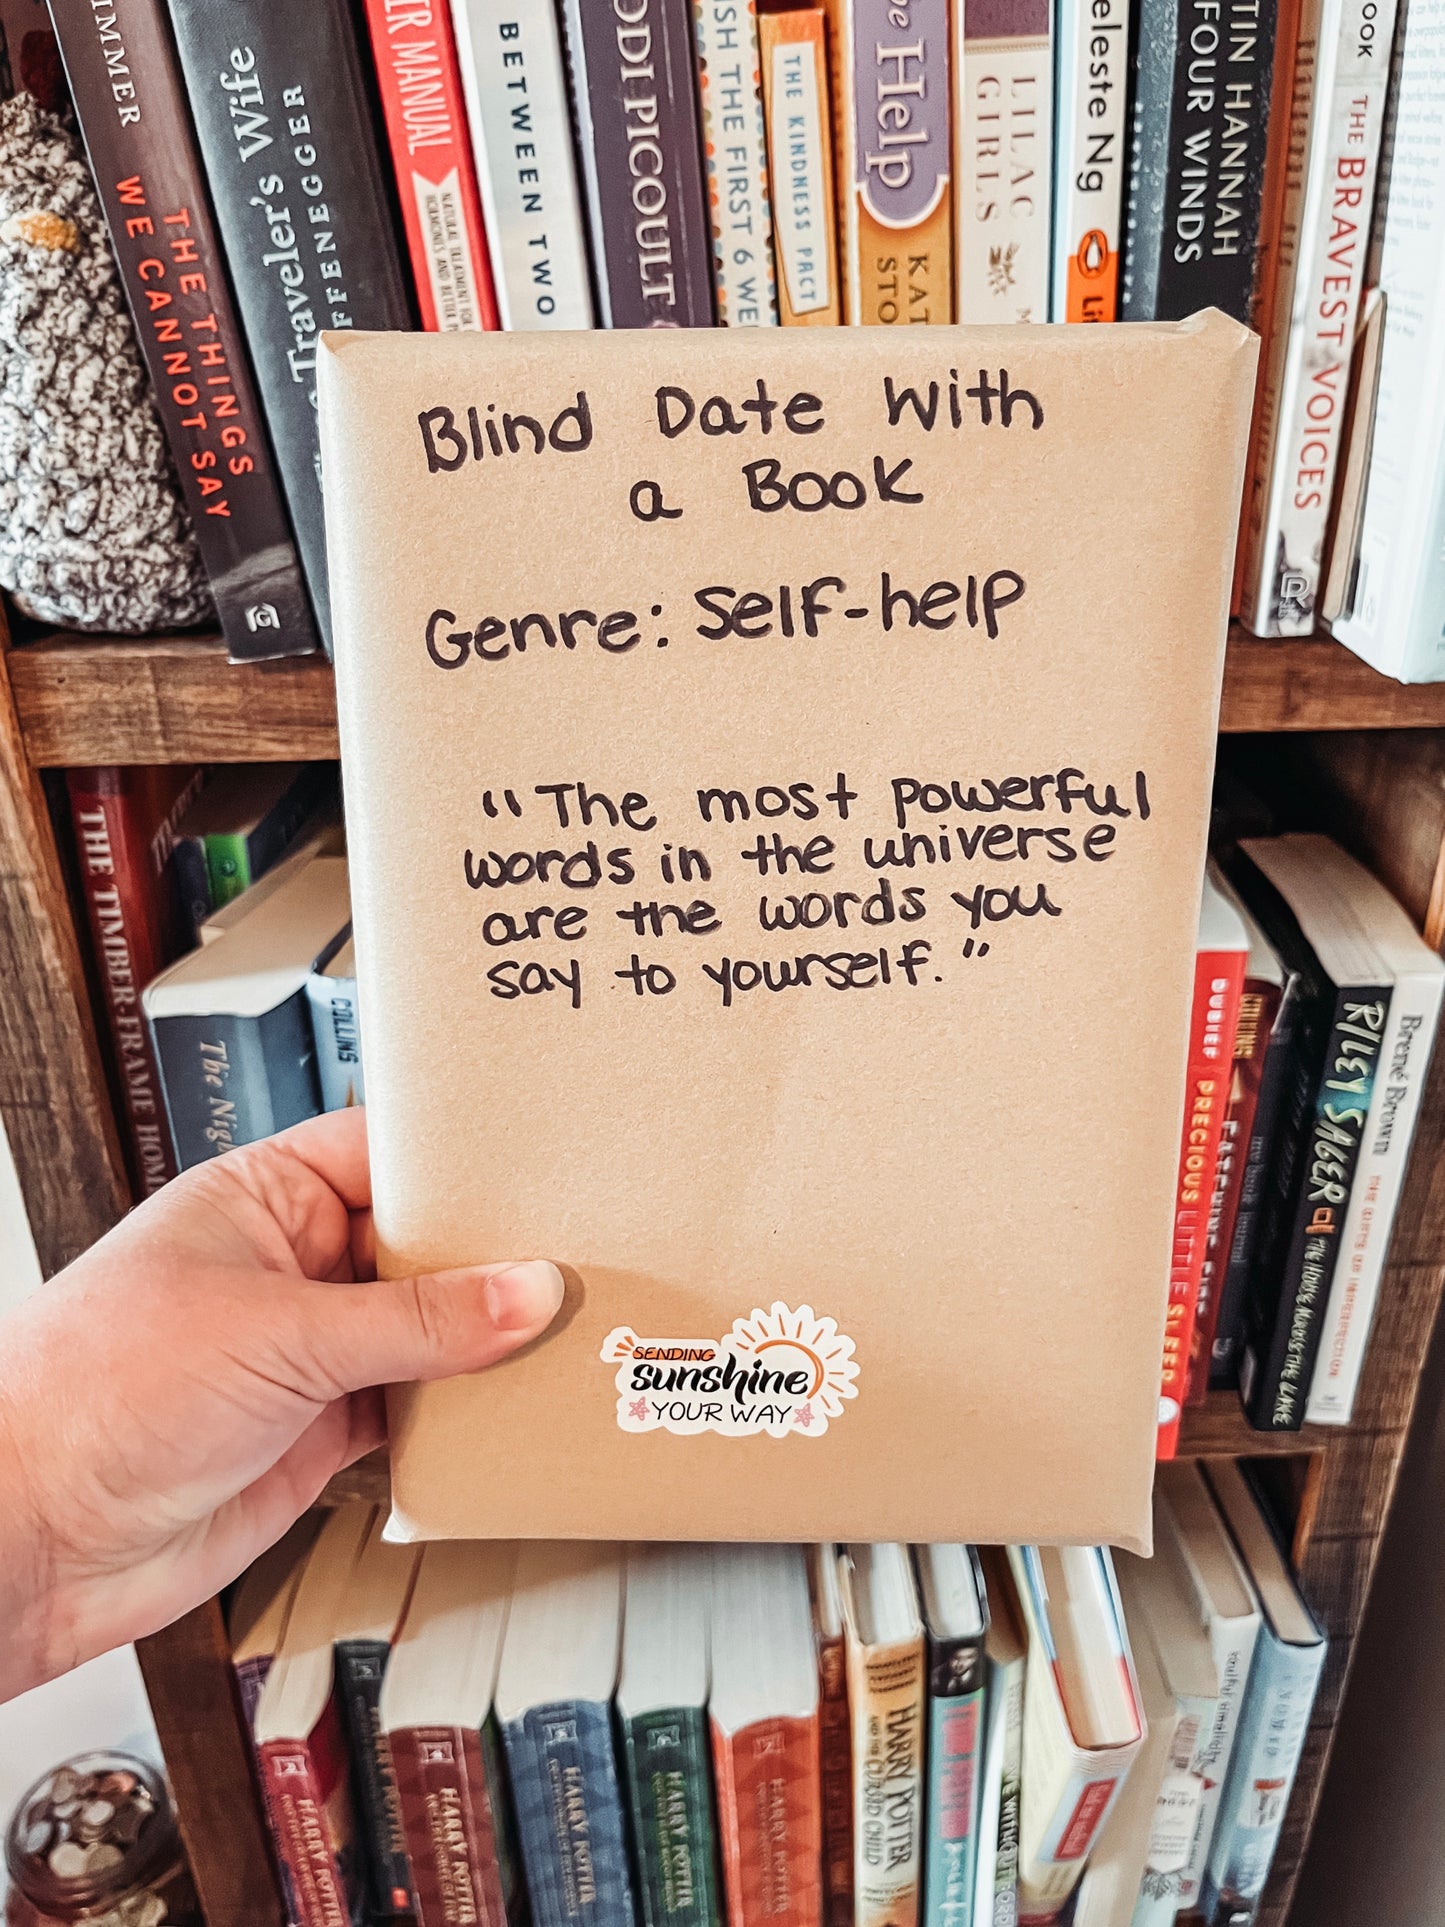 IMMER
THE THINGS
WE CANNOT SAY
Traveler's Wife
FFENEGGER
IR MANUAL
BETWEEN TWO
ODI PICOULT
ISH THE FIRST 6 WE
THE KINDNESS PACT
he Help
KAT
STO
LILAC
GIRLS
M
eleste Ng
Li
TIN HANNAH
FOUR WINDS
OOK
THE BRAVEST VOICES
Blind Date With
a Book
Genre: Self-help
"The most powerful
words in the universe
are the words you
say to yourself."
SENDING
sunshine
YOUR WAY
THE TIMBER-FRAME HOM
The Nig
COLLINS
DUBIEF PRECIOUS LITTLE SLEEP
my book journal
RILEY SAGER THE HOUSE ACROSS THE LAKE
Brené Brown THE GIFTS OF IMPERFECTION
HARRY POTTER
HARRY POTTER
HARRY POTTER
HARRY POTTER
HARRY POTTER
HARRY POTTER
AND THE CURSED CHILD